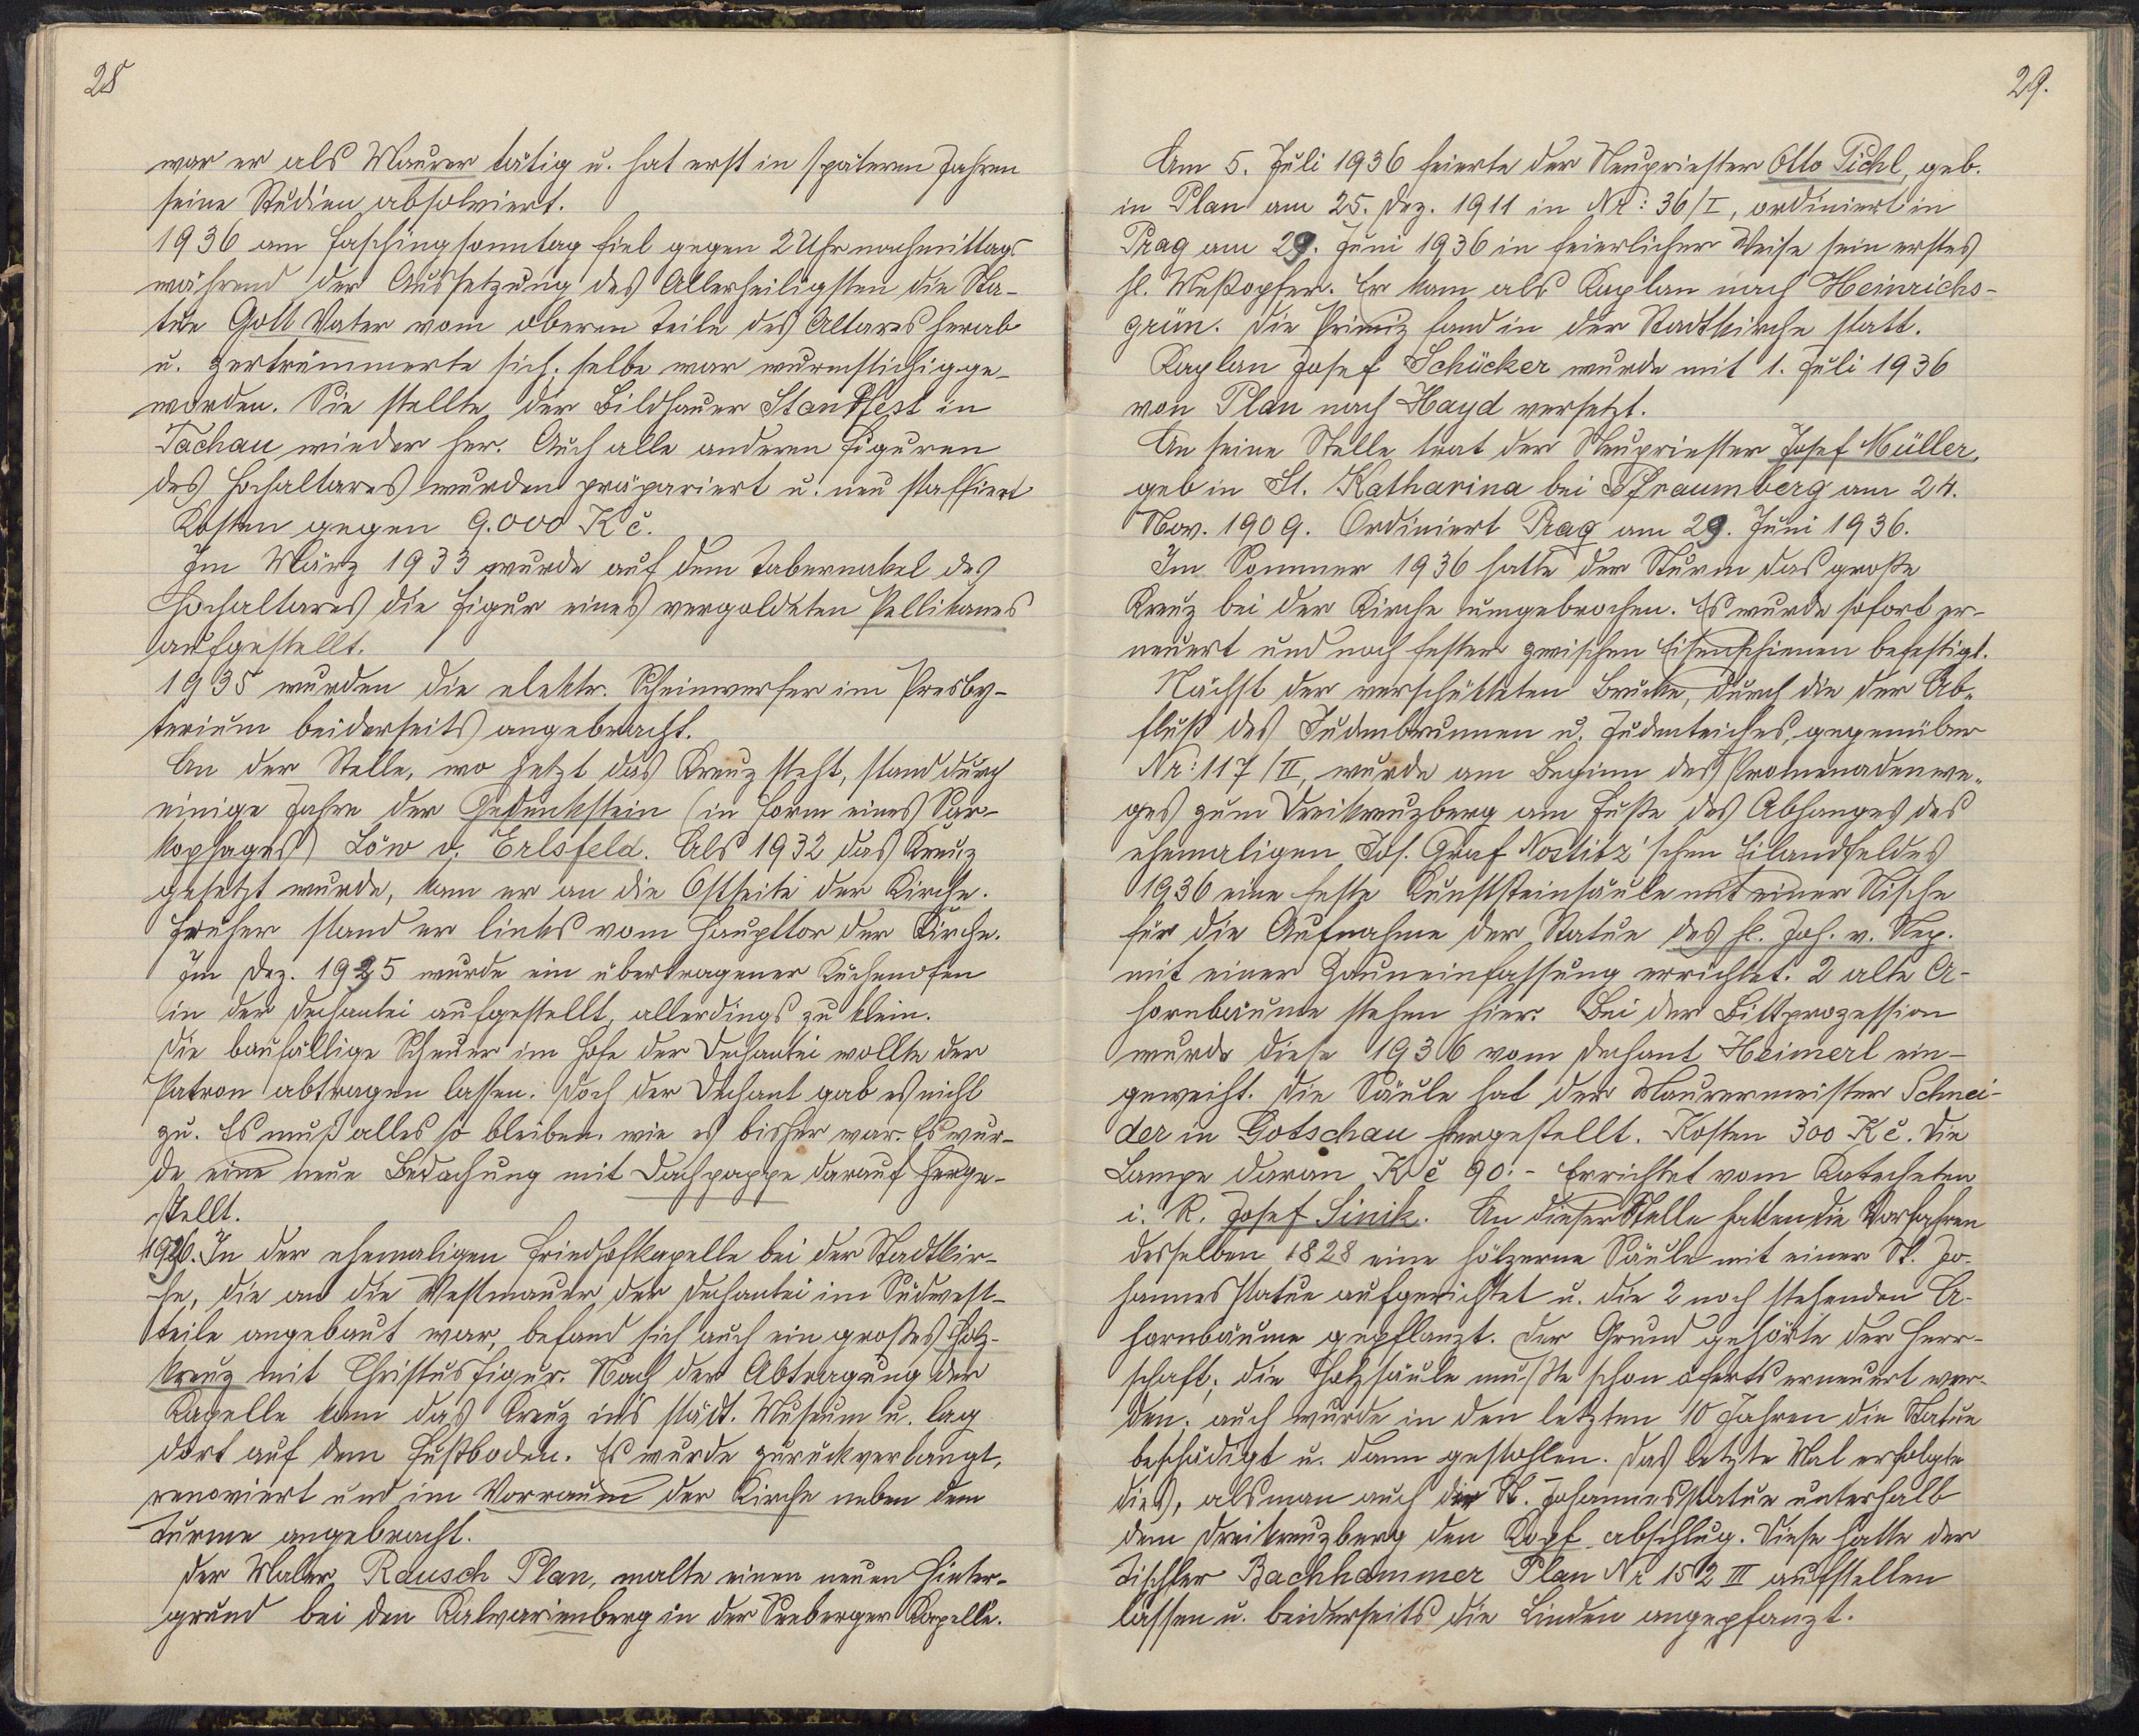 28
war er als Maurer tätig u. hat erst in späteren Jahren
seine Studien absolviert.
1936 am Faschingsonntag fiel gegen 2 Uhr nachmittags
während der Aussetzung des Allerheiligsten die Sta-
tue Gott Vater vom oberen Teile des Altares herab
u. zertrümmerte sich. Selbe war wurmstichig ge-
worden. Sie stellte der Bildhauer Standfest in
Tachau wieder her. Auch alle anderen Figuren
des Hochaltares wurden präpariert u. neu staffiert
Kosten gegen 9.000 Kč.
Im März 1933 wurde auf dem Tabernakel des
Hochaltares die Figur eines vergoldeten Pellikanes
aufgestellt.
1935 wurden die elektr. Scheinwerfer im Presby-
terium beiderseits angebracht.
An der Stelle, wo jetzt das Kreuz steht, stand durch
einige Jahre der Gedenkstein (in Form eines Sar-
kophages) Löw v. Erlsfeld. Als 1932 das Kreuz
gesetzt wurde, kam er an die Ostseite der Kirche.
Früher stand er links vom Haupttor der Kirche.
Im Dez. 1925 wurde ein übertragener Küchenofen
in der Dechantei aufgestellt, allerdings zu klein.
Die baufällige Scheuer im Hofe der Dechantei wollte der
Patron abtragen lassen. Doch der Dechant gab es nicht
zu. Es muß alles so bleiben wie es bisher war. Es wur-
de eine neue Bedachung mit Dachpappe darauf herge-
stellt.
1926. In der ehemaligen Friedhofkapelle bei der Stadtkir-
che, die an die Westmauer der Dechantei im Südwest-
teile angebaut war, befand sich auch ein großes Holz-
kreuz mit Christusfigur. Nach der Abtragung der
Kapelle kam das Kreuz ins städt. Museum u. lag
dort auf dem Fußboden. Es wurde zurückverlangt,
renoviert und im Vorraum der Kirche neben dem
Turme angebracht.
Der Maler Rausch Plan, malte einen neuen Hinter-
grund bei den Kalvarienberg in der Seeberger Kapelle.
29.
Am 5. Juli 1936 feierte der Neupriester Otto Pichl, geb.
in Plan am 25. Dez. 1911 in Nr: 36/I, ordiniert in
Prag am 29. Juni 1936 in feierlicher Weise sein erstes
hl. Meßopfer. Er kam als Kaplan nach Heinrichs-
grün. Die Primiz fand in der Stadtkirche statt.
Kaplan Josef Schücker wurde mit 1. Juli 1936
von Plan nach Hayd versetzt.
An seine Stelle trat der Neupriester Josef Müller,
geb in St. Katharina bei Pfraumberg am 24.
Nov. 1909. Ordiniert Prag am 29. Juni 1936.
Im Sommer 1936 hatte der Sturm das große
Kreuz bei der Kirche umgebrochen. Es wurde sofort er-
neuert und noch fester zwischen Eisenschienen befestigt.
Nächst der verschütteten Brücke, durch die der Ab-
fluß des Judenbrunnen u. Judenteiches, gegenüber
Nr: 117/II, wurde am Beginn des Promenadenwe-
ges zum Dreikreuzberg am Fuße des Abhanges des
ehemaligen Jos. Graf Nostitz'schen Eilandfeldes
1936 eine feste Kunststeinsäule mit einer Nische
für die Aufnahme der Statue des hl. Joh. v. Nep.
mit einer Zauneinfassung errichtet. 2 alte A-
hornbäume stehen hier. Bei der Bittprozession
wurde diese 1936 vom Dechant Heimerl ein-
geweiht. Die Säule hat der Maurermeister Schnei-
der in Gotschau hergestellt. Kosten 300 Kč. Die
Lampe daran Kč 90.- Errichtet vom Katecheten
i. R. Josef Sinik. An dieser Stelle hatten die Vorfahren
desselben 1828 eine hölzerne Säule mit einer St. Jo-
hannesstatue aufgerichtet u. die 2 noch stehenden A-
hornbäume gepflanzt. Der Grund gehörte der Herr-
schaft; die Holzsäule mußte schon öfters erneuert wer-
den; auch wurde in den letzten 10 Jahren die Statue
beschädigt u. dann gestohlen. Das letzte Mal erfolgte
dies, als man auch der St. Johannesstatue unterhalb
dem Dreikreuzberg den Kopf abschlug. Diese hatte der
Tischler Bachhammer Plan Nr 152 III aufstellen
lassen u. beiderseits die Linden angepfanzt.